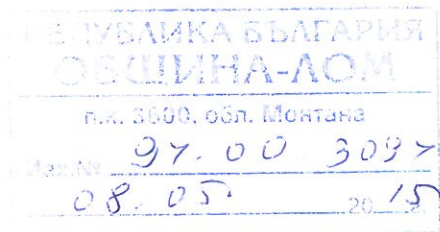 РЕПУБЛИКА БЪЛГАРИЯ
ОБЩИНА-ЛОМ
п.к. 3600, обл. Монтана
Изх.№ 97.00 3097
08.05. 2015